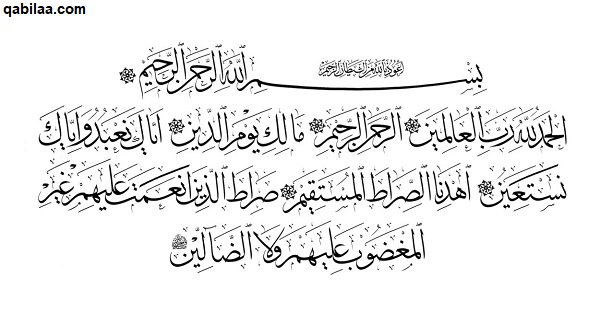 qabilaa.com
أعوذ بالله من الشيطان الرجيم
بسم الله الرحمن الرحيم
الحمد لله رب العالمين الرحمن الرحيم مالك يوم الدين إياك نعبد وإياك
نستعين اهدنا الصراط المستقيم صراط الذين أنعمت عليهم غير
المغضوب عليهم ولا الضالين